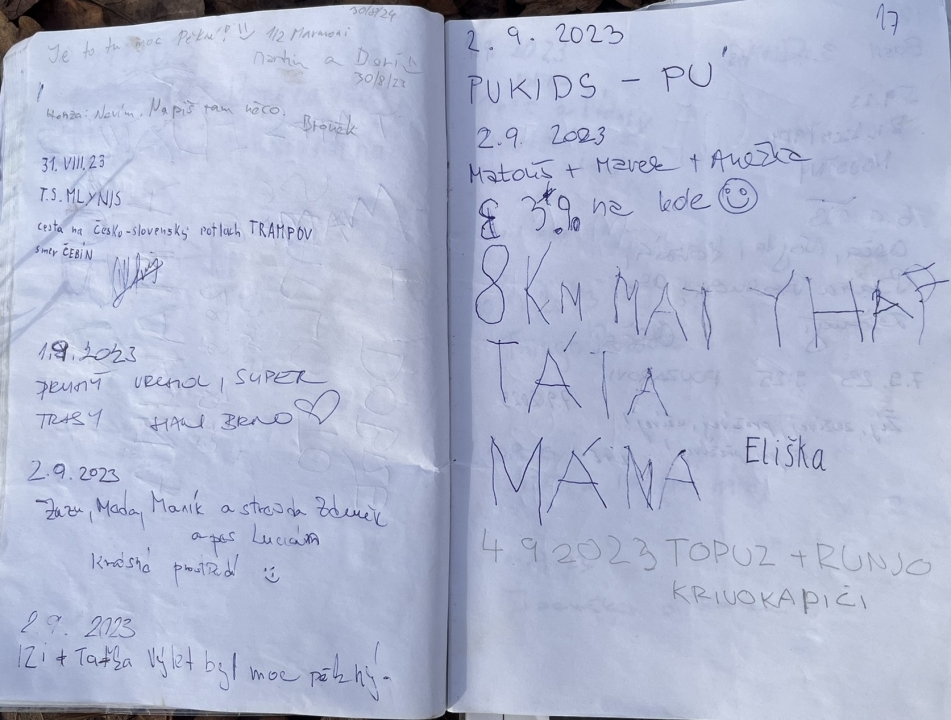 30/8/24
Je to tu moc Pěkné! 1/2 Marmoni
Martin a
30/8/22
Honza: Nevím. Napiš tam něco.
31. VIII. 23
T.S. MLYNIS
cesta na Česko-slovenský potlach TRAMPOV
smer ČEBÍN
1.9.2023
DRUHÝ VRCHOL, SUPER
TRASY BRNO
2.9.2023
Zuzu, Mada, Maník a strejda Zdeněk
a pes Lucián
Krásné prostředí
2.9. 2023
IZi + Taťka Výlet byl moc pěkný!
17
2. 9. 2023
PUKIDS - PU
2.9. 2023
Matouš + Marek + Anežka
3% na kole
8KM MATYHAF
TÁTA
MÁMA Eliška
4.9.2023 TOPUZ + RUNJO
KRIVOKAPIĆI